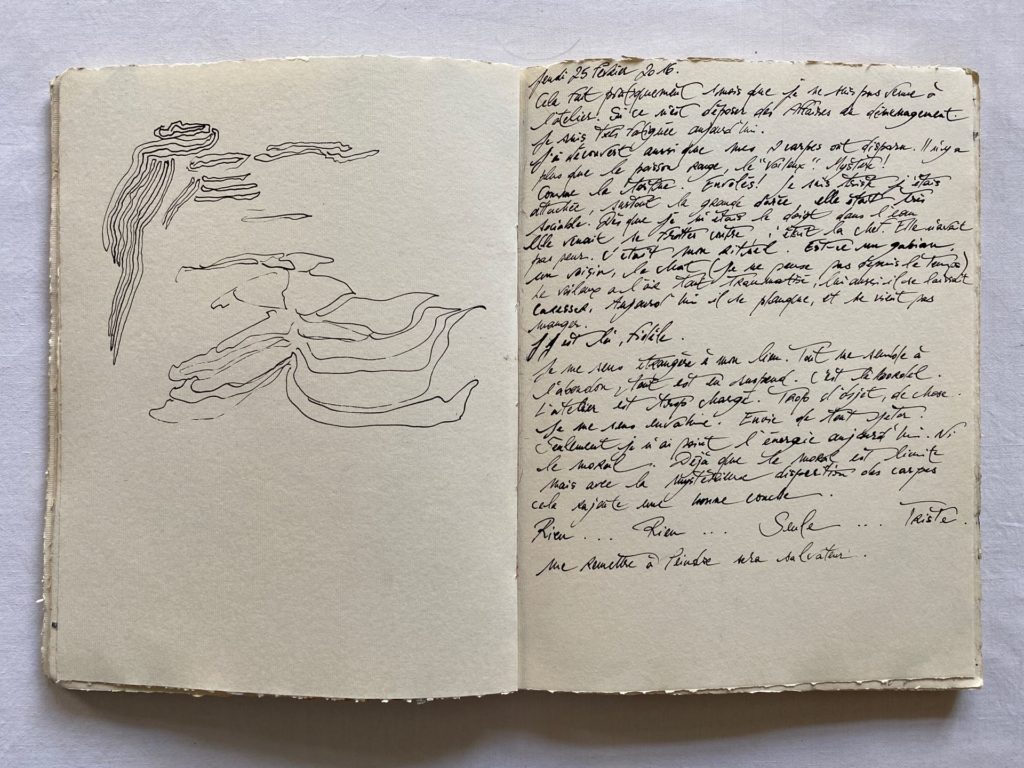 Jeudi 25 Février 2016.
Cela fait pratiquement 1 mois que je ne suis pas venue à
l'atelier. Si ce n'est déposer des affaires du déménagement.
Je suis très fatiguée aujourd'hui.
J'ai découvert aussi que mes 2 carpes ont disparu. Il n'y a
plus que le poisson rouge, le "voileux". Mystère!
Comme la tortue. Envolés! Je suis triste j'étais
attachée, surtout la grande dorée elle était très
sociable. Dès que je mettais le doigt dans l'eau
elle venait se frotter contre, c'était la chef. Elle n'avait
pas peur. C'était mon rituel. Est-ce un gabian,
un voisin, le chat (je ne pense pas depuis le temps)
Le voileux a l'air tout traumatisé, lui aussi il se laissait
caresser, Aujourd'hui il se planque, et ne vient pas
manger.
Il est là, fidèle.
Je me sens étrangère à mon lieu. Tout me semble à
l'abandon, tout est en suspend. C'est le bordel.
L'atelier est trop chargé. Trop d'objet, de chose.
Je me sens envahie. Envie de tout jeter.
Seulement je n'ai point l'énergie aujourd'hui. Ni
le moral. Déjà que le moral est limite
mais avec la mystérieuse disparition des carpes
cela rajoute une bonne couche.
Rien ... Rien ... Seule ... Triste.
me remettre à Peindre sera salvateur.